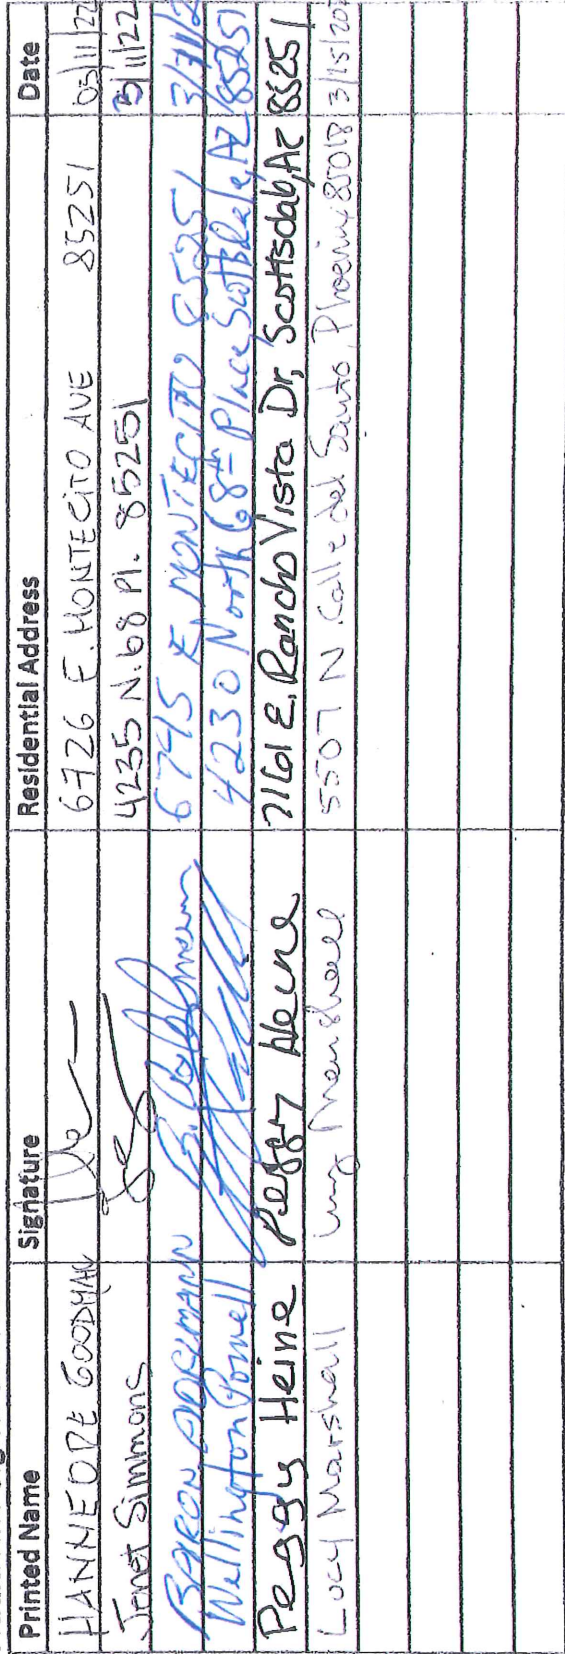 Printed Name Signature Residential Address Date
HANNELORE GOODMAN 6726 E. MONTECITO AVE 85251 03/11/22
Janet Simmons 4235 N. 68 Pl. 85251 3/11/22
BARON 6745 E. MONTECITO 85251
Wellington Powell 4230 North 68th Place Scottsdale, AZ 85251
Peggy Heine Peggy Heine 7161 E. Rancho Vista Dr, Scottsdale, AZ 85251
Lucy Marshall Lucy Marshall 5507 N. Calle del Santo, Phoenix 85018 3/15/202